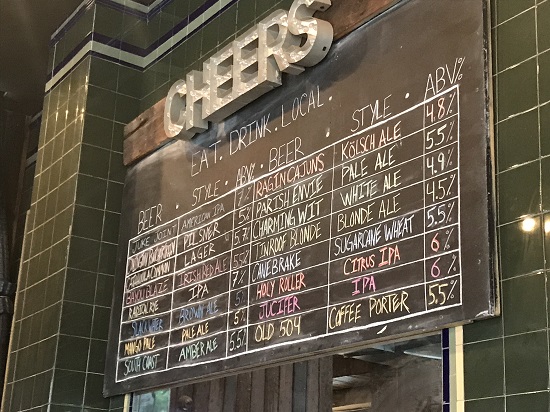 CHEERS
EAT. DRINK. LOCAL.
BEER . STYLE . ABV%
JUKE JOINT AMERICAN IPA 7%
PILSNER
LAGER 5.7
IRISH RED ALE 5.5%
IPA 7%
BROWN ALE 5%
MANGO PALE PALE ALE 5%
SOUTH COAST AMBER ALE 5.5
BEER . STYLE . ABV%
RAGIN CAJUNS KÖLSCH ALE 4.8%
PARISH ENVIE PALE ALE 5.5%
CHARMING WIT WHITE ALE 4.9%
TINROOF BLONDE BLONDE ALE 4.5%
CANEBRAKE SUGARCANE WHEAT 5.5%
HOLY ROLLER CITRUS IPA 6%
JUCIFER IPA 6%
OLD 504 COFFEE PORTER 5.5%